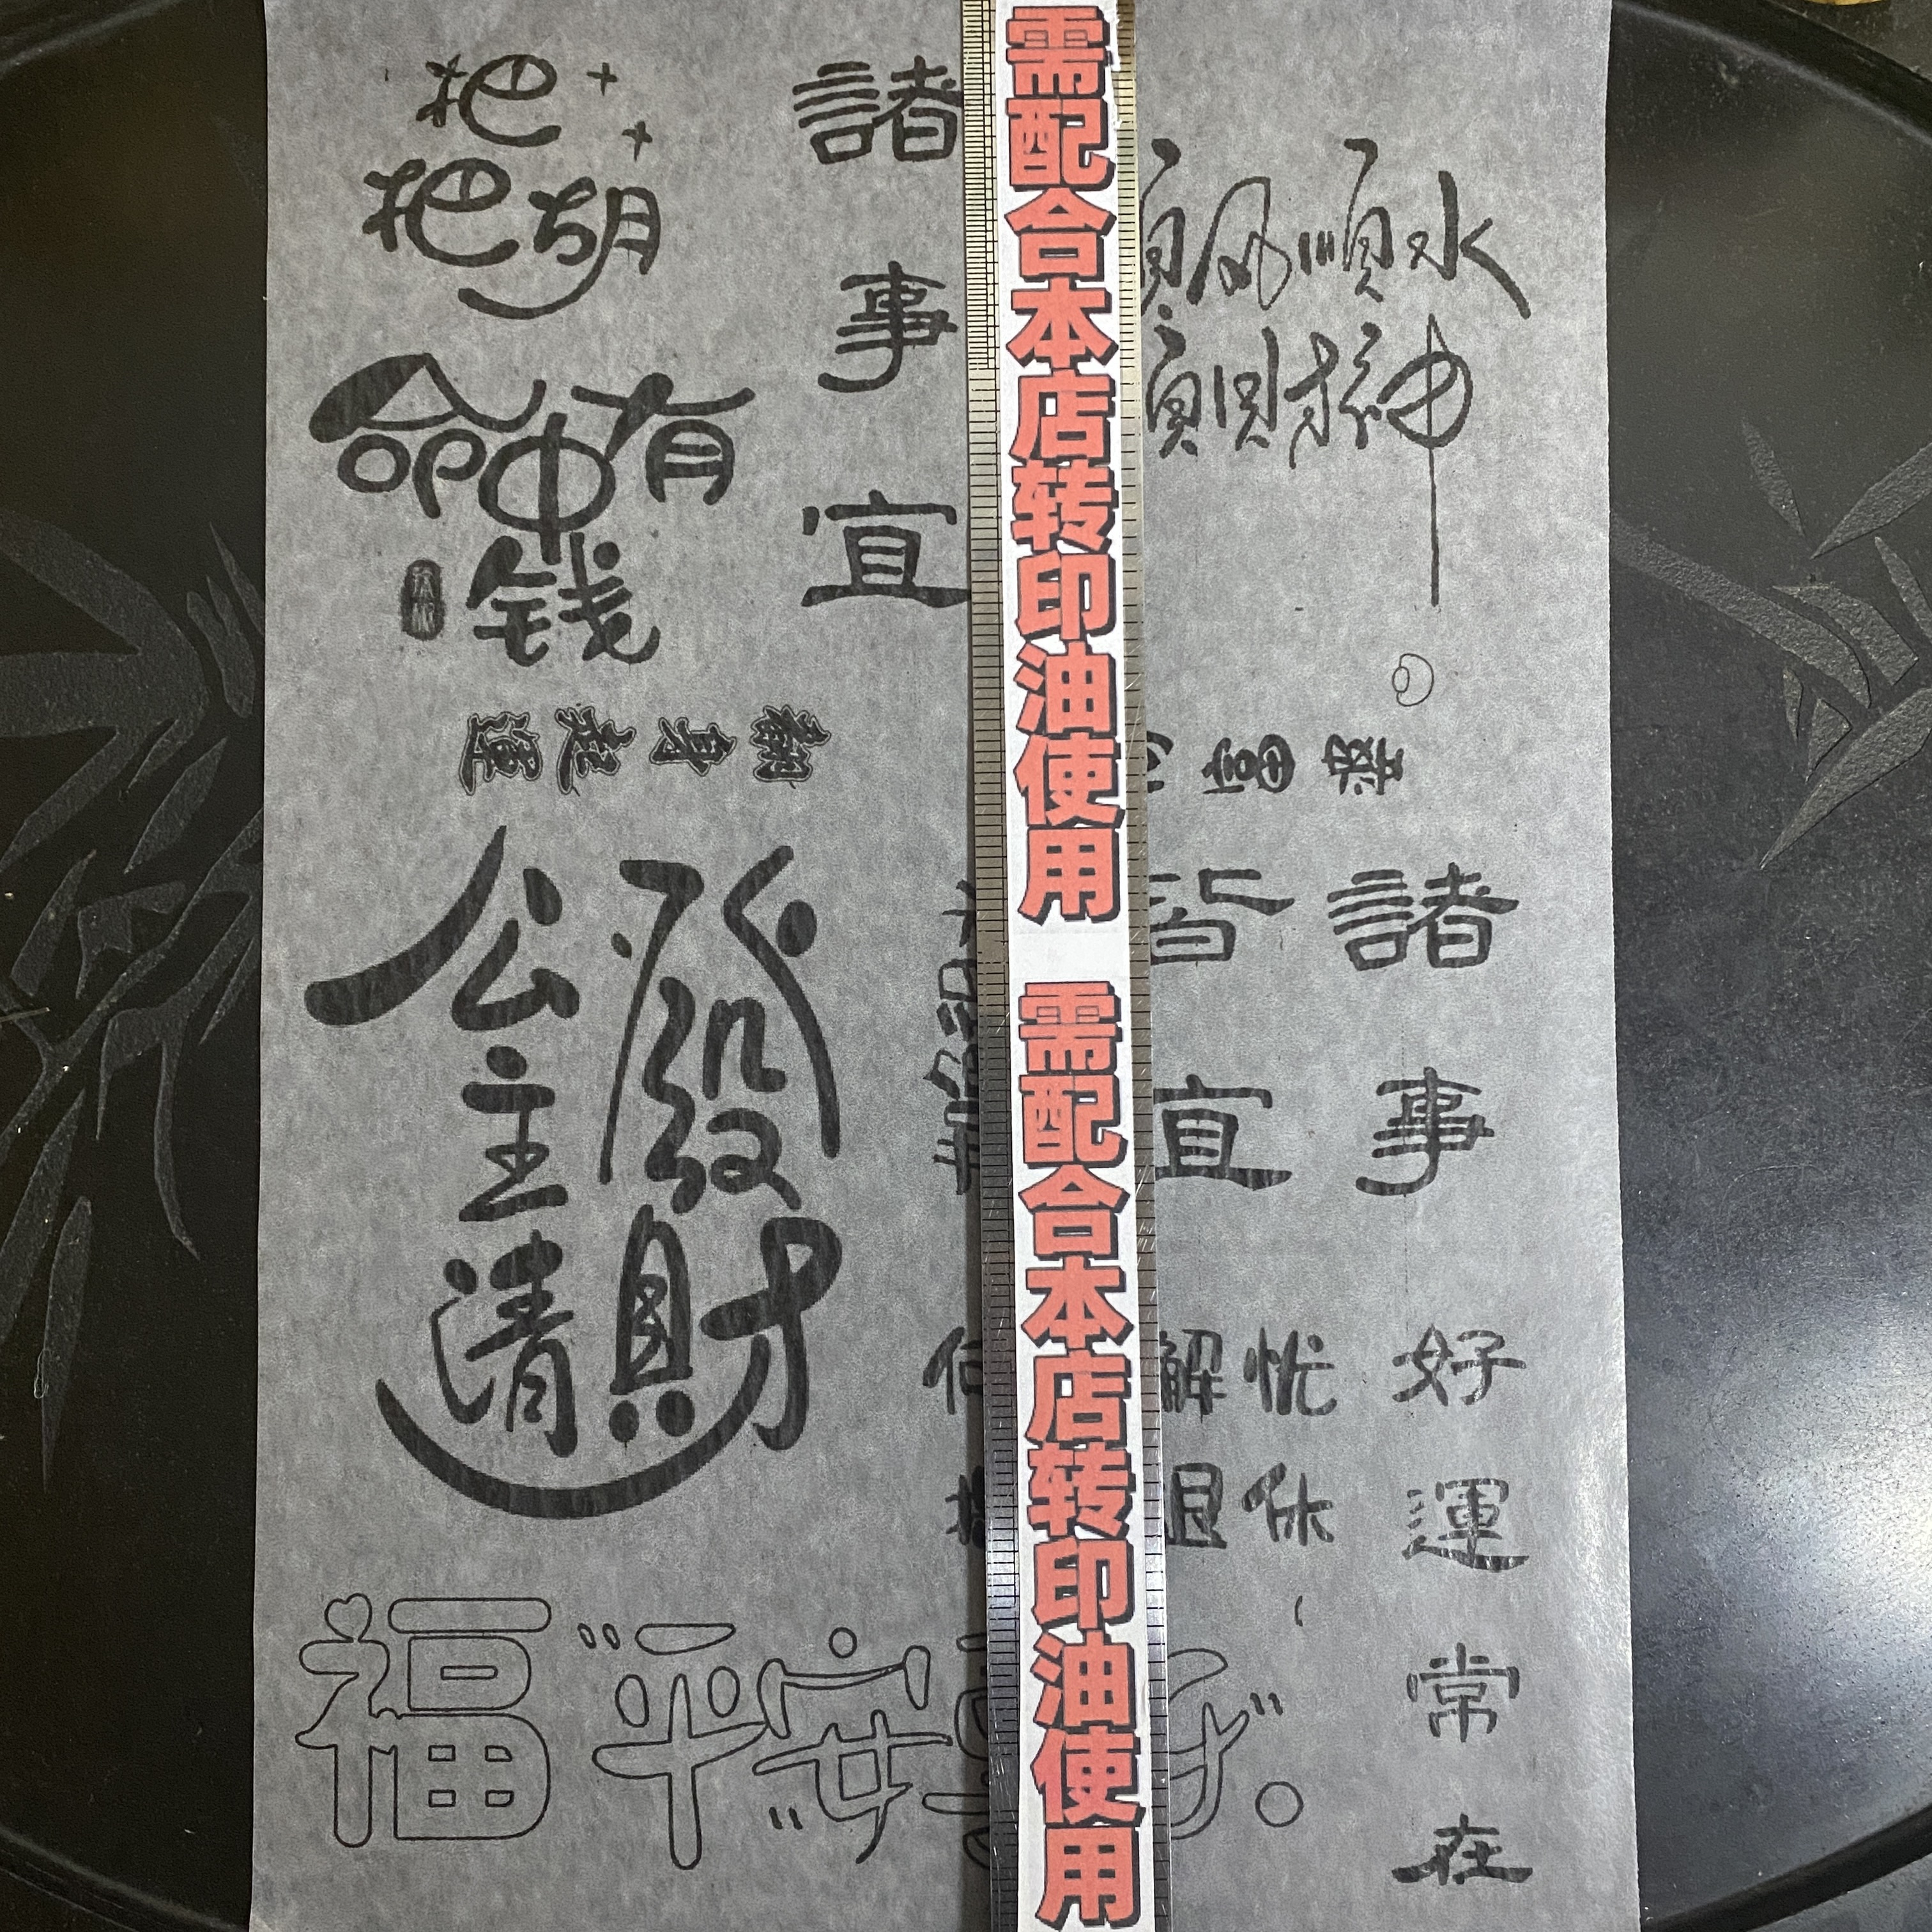 把
把胡
命中有
钱
諸
事
宜
翻身起運
發財
公主請
福
"平安
需配合本店转印油使用
需配合本店转印油使用
順水
財神
富
諸
事
皆
宜
解忧
退休
好
運
常
在